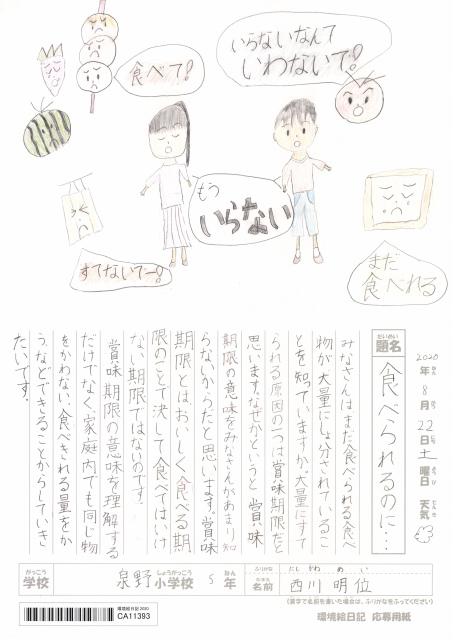 食べて!
いらないなんて
いわないで!
もう
いらない
すてないでー!
まだ
食べれる
だいめい
題名
食べられるのに…
2020
年
8
月
22
日
土
曜日
天気
みなさんはまだ食べられる食べ
物が大量にしょ分されているこ
とを知っていますか。大量にすて
られる原因の一つは賞味期限だと
思います。なぜかというと、賞味
期限の意味をみなさんがあまり知
らないからだと思います。賞味
期限とはおいしく食べる期
限のことで決して食べてはいけ
ない期限ではないのです。
賞味期限の意味を理解する
だけでなく、家庭内でも同じ物
をかわない、食べきれる量をか
う、などできることからしていき
たいです。
がっこう
学校
泉野
しょうがっこう
小学校
5
ねん
年
ふりがな
にしかわ めい
なまえ
名前
西川 明位
(漢字で名前を書いた場合は、ふりがなをふってください)
環境絵日記 2020
CA11393
環境絵日記 応募用紙